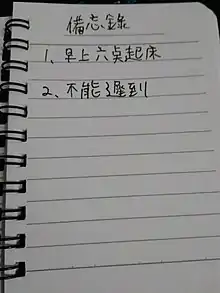 備忘錄
1、早上六点起床
2、不能遲到